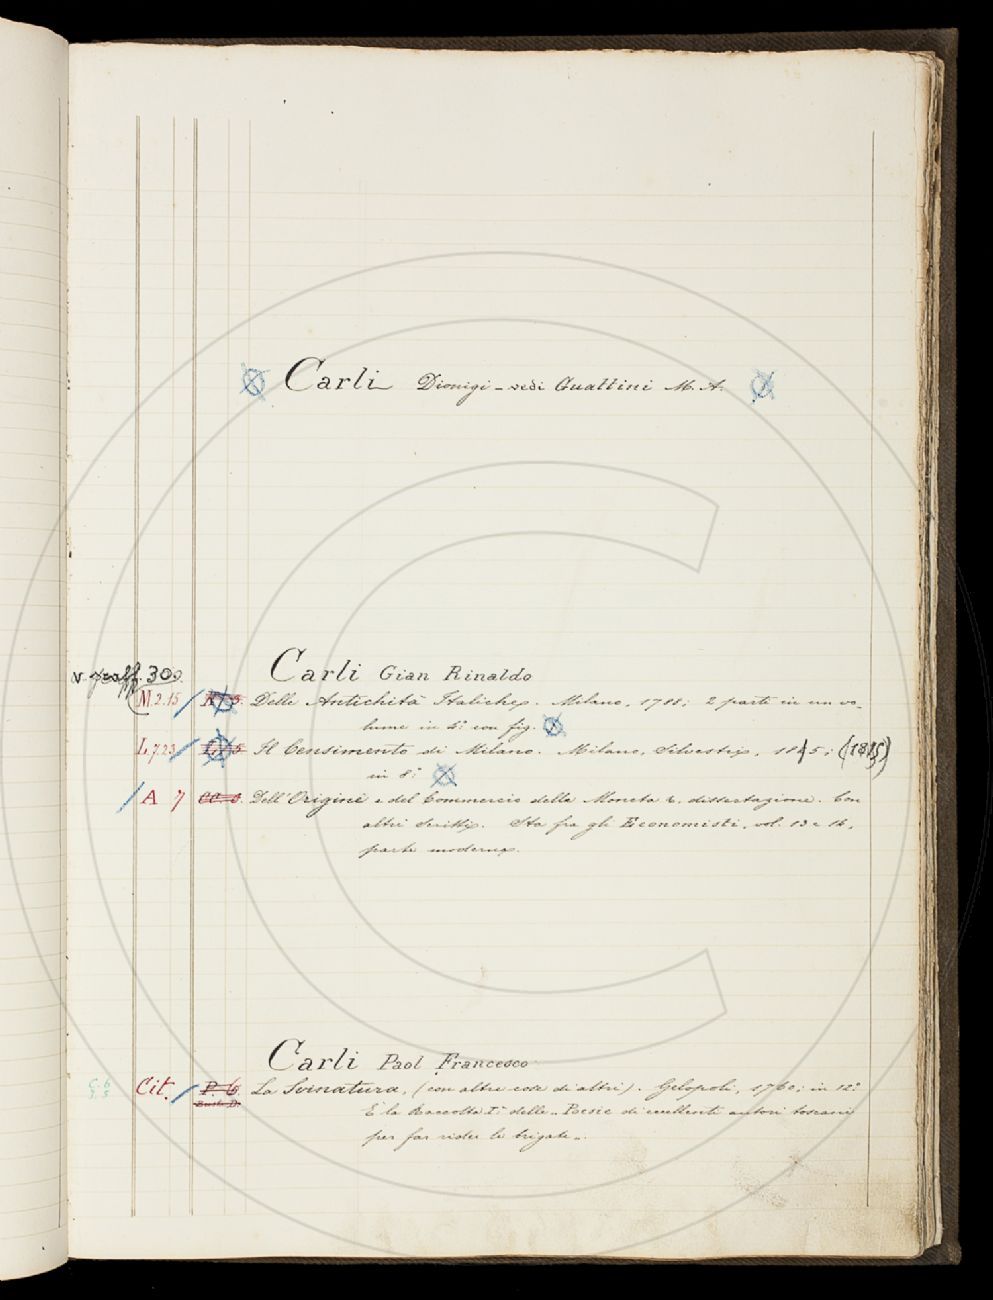 Carli Dionigi - vedi Guattini M. A.
v. graff. 300
Carli Gian Rinaldo
M.2.15 Delle Antichità Italiche. Milano, 1788; 2 parti in un vo-
lume in 4.º con fig.
L.7.23 Il Censimento di Milano. Milano, Silvestri, 1845; (1815)
in 8.º
A 7 CC. 8. Dell'Origine e del Commercio della Moneta &. dissertazione. Con
altri scritti. Sta fra gli Economisti, vol. 13 e 14,
parte moderna.
Carli Paol Francesco
C.6
Cit. P. 6 La Svinatura, (con altre cose di altri). Gelopoli, 1760; in 12.º
Busta D.
È la Raccolta I.ª delle „Poesie di eccellenti autori toscani
per far rider le brigate„.